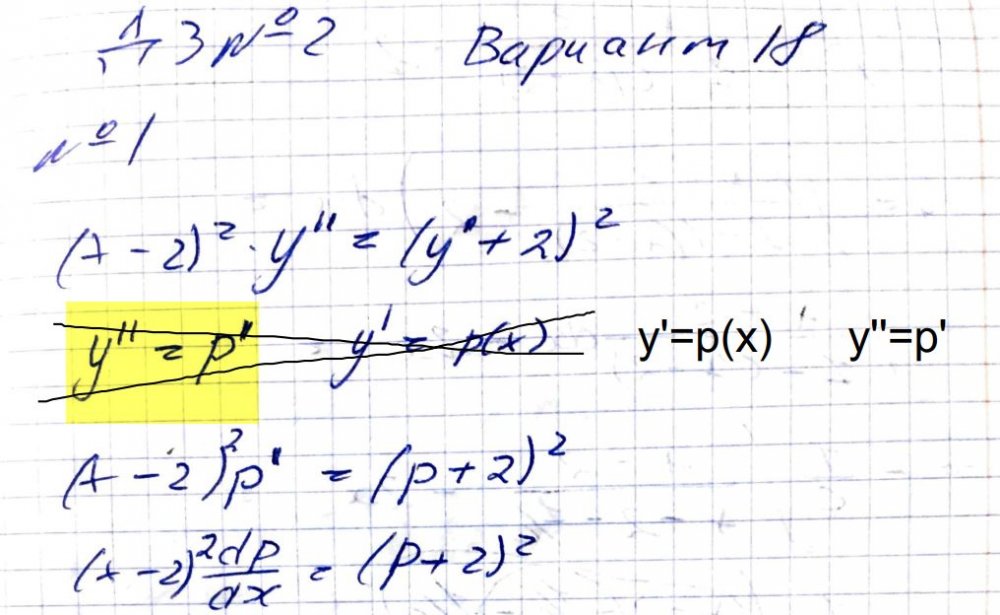 ДЗ №2 Вариант 18
№1
(x - 2)² · y'' = (y' + 2)²
y'' = p' y' = p(x) y'=p(x) y''=p'
(x - 2)² p' = (p + 2)²
(x - 2)² dp/dx = (p + 2)²